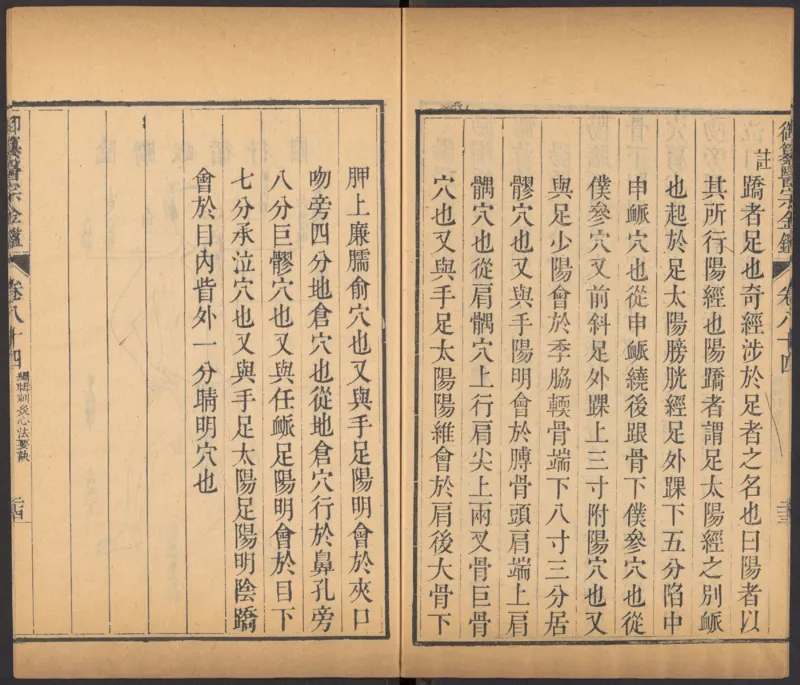 註
蹻者足也奇經涉於足者之名也曰陽者以
其所行陽經也陽蹻者謂足太陽經之別衇
也起於足太陽膀胱經足外踝下五分陷中
申衇穴也從申衇繞後跟骨下僕參穴也從
僕參穴又前斜足外踝上三寸附陽穴也又
與足少陽會於季脇輭骨端下八寸三分居
髎穴也又與手陽明會於膊骨頭肩端上肩
髃穴也從肩髃穴上行肩尖上兩叉骨巨骨
穴也又與手足太陽陽維會於肩後大骨下
胛上廉臑俞穴也又與手足陽明會於夾口
吻旁四分地倉穴也從地倉穴行於鼻孔旁
八分巨髎穴也又與任衇足陽明會於目下
七分承泣穴也又與手足太陽足陽明陰蹻
會於目內眥外一分睛明穴也
御纂醫宗金鑑
卷八十四
御纂醫宗金鑑
卷八十四
編輯刺灸心法要訣